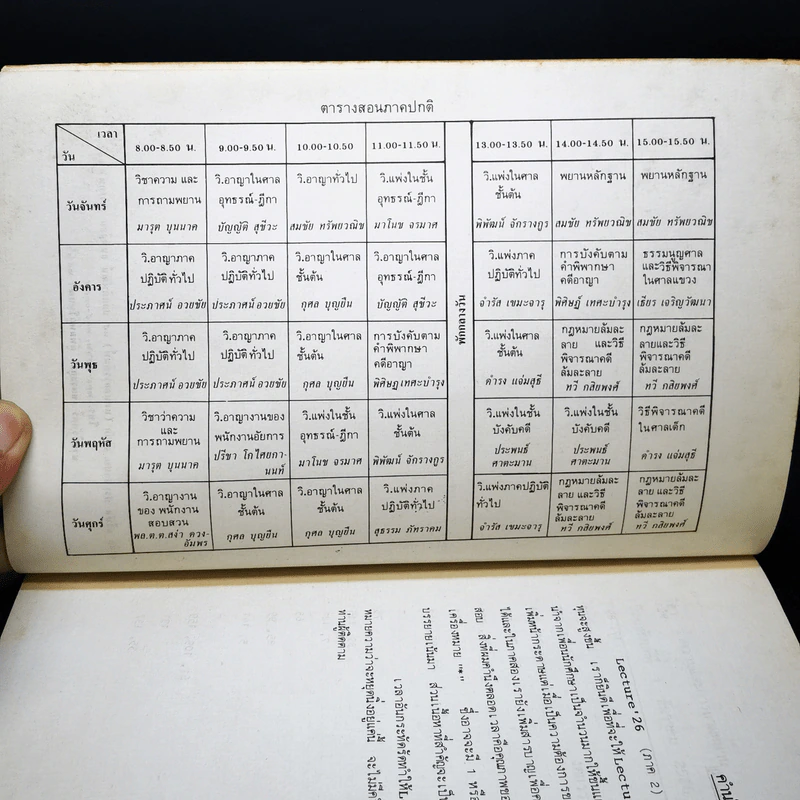 ตารางสอนภาคปกติ
เวลา
วัน
8.00-8.50 น.
9.00-9.50 น.
10.00-10.50
11.00-11.50 น.
13.00-13.50 น.
14.00-14.50 น.
15.00-15.50 น.
วันจันทร์
วิชาความ และ
การถามพยาน
มารุต บุนนาค
วิ.อาญาในศาล
อุทธรณ์-ฎีกา
บัญญัติ สุชีวะ
วิ.อาญาทั่วไป
สมชัย ทรัพยวณิช
วิ.แพ่งในชั้น
อุทธรณ์-ฎีกา
มาโนช จรมาศ
วิ.แพ่งในศาล
ชั้นต้น
พิพัฒน์ จักรางกูร
พยานหลักฐาน
สมชัย ทรัพยวณิช
พยานหลักฐาน
สมชัย ทรัพยวณิช
อังคาร
วิ.อาญาภาค
ปฏิบัติทั่วไป
ประภาศน์ อวยชัย
วิ.อาญาภาค
ปฏิบัติทั่วไป
ประภาศน์ อวยชัย
วิ.อาญาในศาล
ชั้นต้น
กุศล บุญยืน
วิ.อาญาในศาล
อุทธรณ์-ฎีกา
บัญญัติ สุชีวะ
พักกลางวัน
วิ.แพ่งภาค
ปฏิบัติทั่วไป
จำรัส เขมะจารุ
การบังคับตาม
คำพิพากษา
คดีอาญา
พิศิษฏ์ เทศะบำรุง
ธรรมนูญศาล
และวิธีพิจารณา
ในศาลแขวง
เธียร เจริญวัฒนา
วันพุธ
วิ.อาญาภาค
ปฏิบัติทั่วไป
ประภาศน์ อวยชัย
วิ.อาญาภาค
ปฏิบัติทั่วไป
ประภาศน์ อวยชัย
วิ.อาญาในศาล
ชั้นต้น
กุศล บุญยืน
การบังคับตาม
คำพิพากษา
คดีอาญา
พิศิษฏ เทศะบำรุง
วิ.แพ่งในศาล
ชั้นต้น
ดำรง แจ่มสุธี
กฎหมายล้มละ
ลาย และวิธี
พิจารณาคดี
ล้มละลาย
ทวี กสิยพงศ์
กฎหมายล้มละ
ลายและวิธี
พิจารณาคดี
ล้มละลาย
ทวี กสิยพงศ์
วันพฤหัส
วิชาว่าความ
และ
การถามพยาน
มารุต บุนนาค
วิ.อาญางานของ
พนักงานอัยการ
ปรีชา โกไศยกา-
นนท์
วิ.แพ่งในชั้น
อุทธรณ์-ฎีกา
มาโนช จรมาศ
วิ.แพ่งในศาล
ชั้นต้น
พิพัฒน์ จักรางกูร
วิ.แพ่งในชั้น
บังคับคดี
ประพนธ์
ศาตะมาน
วิ.แพ่งในชั้น
บังคับคดี
ประพนธ์
ศาตะมาน
วิธีพิจารณาคดี
ในศาลเด็ก
ดำรง แจ่มสุธี
วันศุกร์
วิ.อาญางาน
ของ พนักงาน
สอบสวน
พล.ต.ต.สง่า ดวง-
อัมพร
วิ.อาญาในศาล
ชั้นต้น
กุศล บุญยืน
วิ.อาญาในศาล
ชั้นต้น
กุศล บุญยืน
วิ.แพ่งภาค
ปฏิบัติทั่วไป
สุธรรม ภัทราคม
วิ.แพ่งภาคปฏิบัติ
ทั่วไป
จำรัส เขมะจารุ
กฎหมายล้มละ
ลาย และวิธี
พิจารณาคดี
ล้มละลาย
ทวี กสิยพงศ์
กฎหมายล้มละ
ลาย และวิธี
พิจารณาคดี
ล้มละลาย
ทวี กสิยพงศ์
คำน
Lecture.'26 (ภาค 2)
ทุนจะสูงขึ้น เราก็ยินดีเพื่อที่จะให้ Lectu
นำจากเพื่อนนักศึกษาเป็นจำนวนมากให้ขึ้นแ
เพิ่มหน้ากระดาษแต่เมื่อเป็นความต้องการข
ให้และในภาคสองเรายังเพิ่มสารบาญเพื่อค
สอบ สิ่งที่ผมคำนึงตลอดเวลาคือคุณภาพขอ
เครื่องหมาย "*" ซึ่งอาจจะมี 1 หรือ
บรรยายเน้นมา ส่วนเนื้อหาที่สำคัญจะเป็น
เวลาอันกระทัดรัดทำให้L
หมายความว่าจะหยุดนิ่งอยู่แค่นี้ จะไม่มีค
ท่านผู้ติดตาม